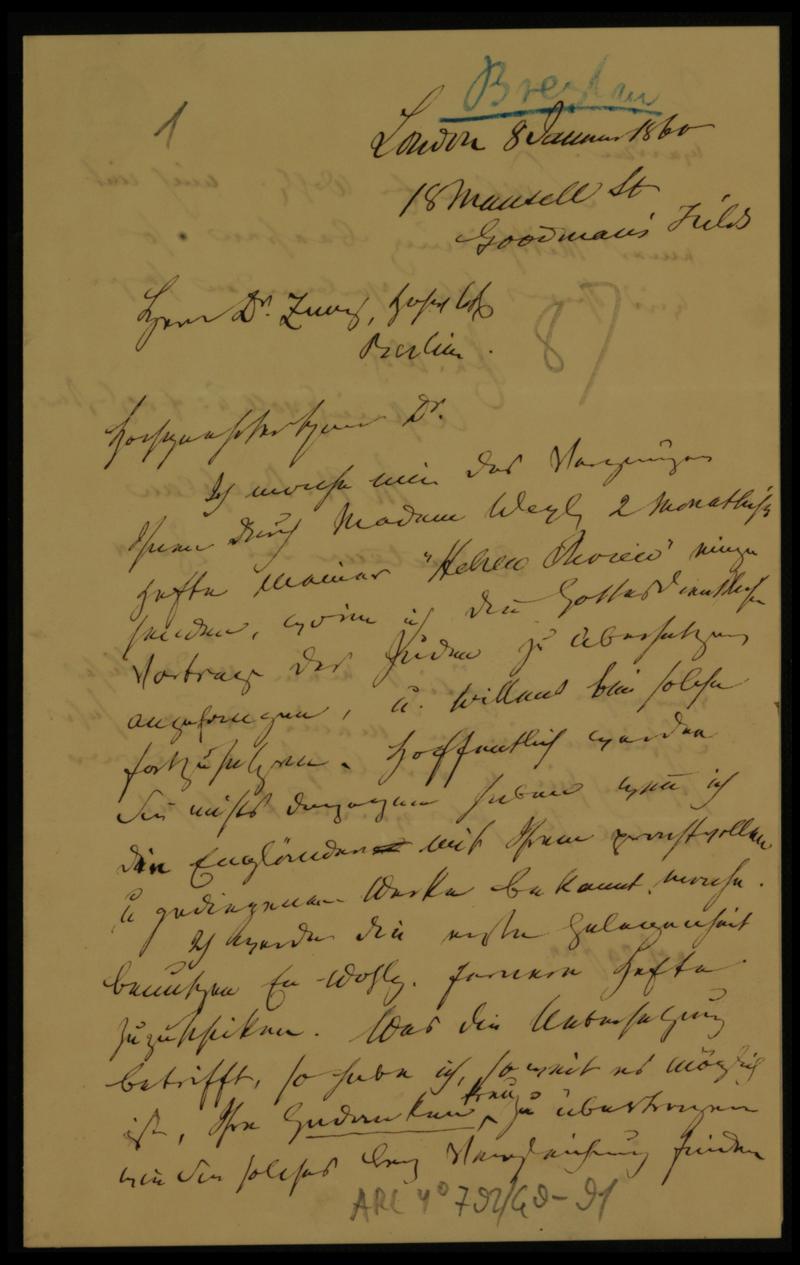 Breslau
1
London 8 Januar 1860
18 Mansell St
Goodman's Fields
Herrn Dr. Zunz,
Berlin.
87
Hochgeehrter Herr Dr.
Ich mache mir das Vergnügen
Ihnen durch Madam Weyl 2 Monatliche
Hefte meiner "Hebrew Review" einzu
senden, worin ich die Gottesdienstlichen
Vorträge der Juden zu übersetzen
angefangen, u. Willens bin solche
fortzusetzen. Hoffentlich werden
Sie nichts dagegen haben wenn ich
die Engländer mit Ihrem prachtvollen
u gediegenen Werke bekannt mache.
Ich werde die erste Gelegenheit
benutzen Ew-Wohlg. fernere Hefte
zuzuschicken. Was die Uebersetzung
betrifft, so habe ich, so weit es möglich
ist, Ihre Gedanken treu zu übertragen
wie Sie solches bey Vergleichung finden
ARC 4° 792/G9-91